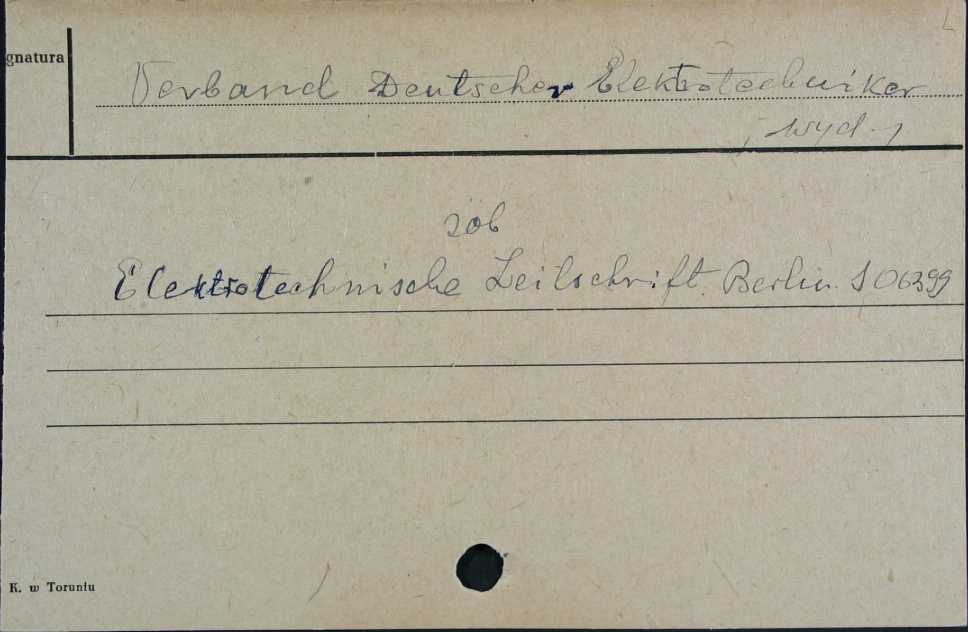 gnatura
Verband Deutscher Elektrotechniker
/wyd./
zob
Elektrotechnische Zeitschrift. Berlin. S 06399
K. w Toruniu